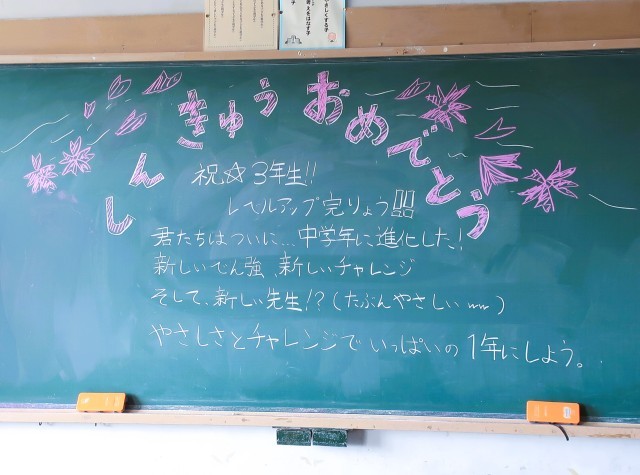 しんきゅうおめでとう
祝☆3年生!!
レベルアップ完りょう!!
君たちはついに…中学年に進化した!
新しいべん強、新しいチャレンジ
そして、新しい先生!?(たぶんやさしいww)
やさしさとチャレンジでいっぱいの1年にしよう。